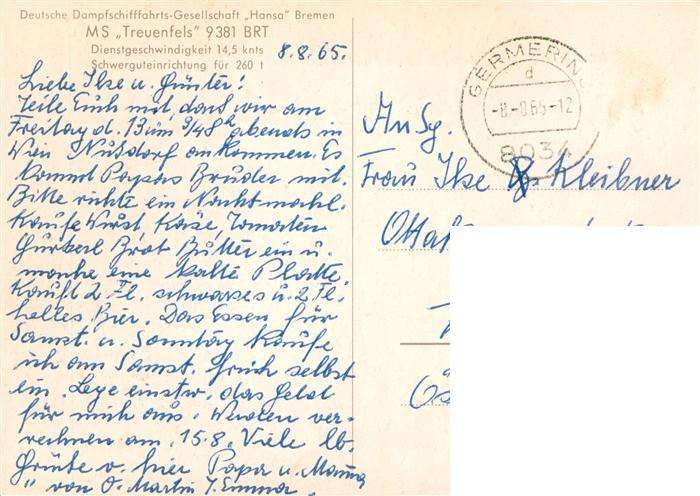 Deutsche Dampfschifffahrts-Gesellschaft „Hansa" Bremen
MS „Treuenfels" 9381 BRT
Dienstgeschwindigkeit 14,5 knts
Schwerguteinrichtung für 260 t
8.8.65.
Liebe Ilse u. Günter!
Teile Euch mit, dass wir am
Freitag d. 13 um 9/48 h abends in
Wien Nußdorf ankommen. Es
kommt Papas Bruder mit.
Bitte richte ein Nachtmahl.
Kaufe Wurst, Käse, Tomaten
Gurkerl Brot Butter ein u.
mache eine kalte Platte.
Kauft 2 Fl. schwarzes u. 2 Fl.
helles Bier. Das Essen für
Samst. u. Sonntag kaufe
ich am Samst. früh selbst
ein. Lege einstw. das Geld
für mich aus. Werden ver-
rechnen am 15.8. Viele lb.
Grüße v. hier Papa u. Mama
" von O. Martin T. Emma.
GERMERING
d
-8.-8.65.-12
8034
An Sg.
Frau Ilse Kleibner